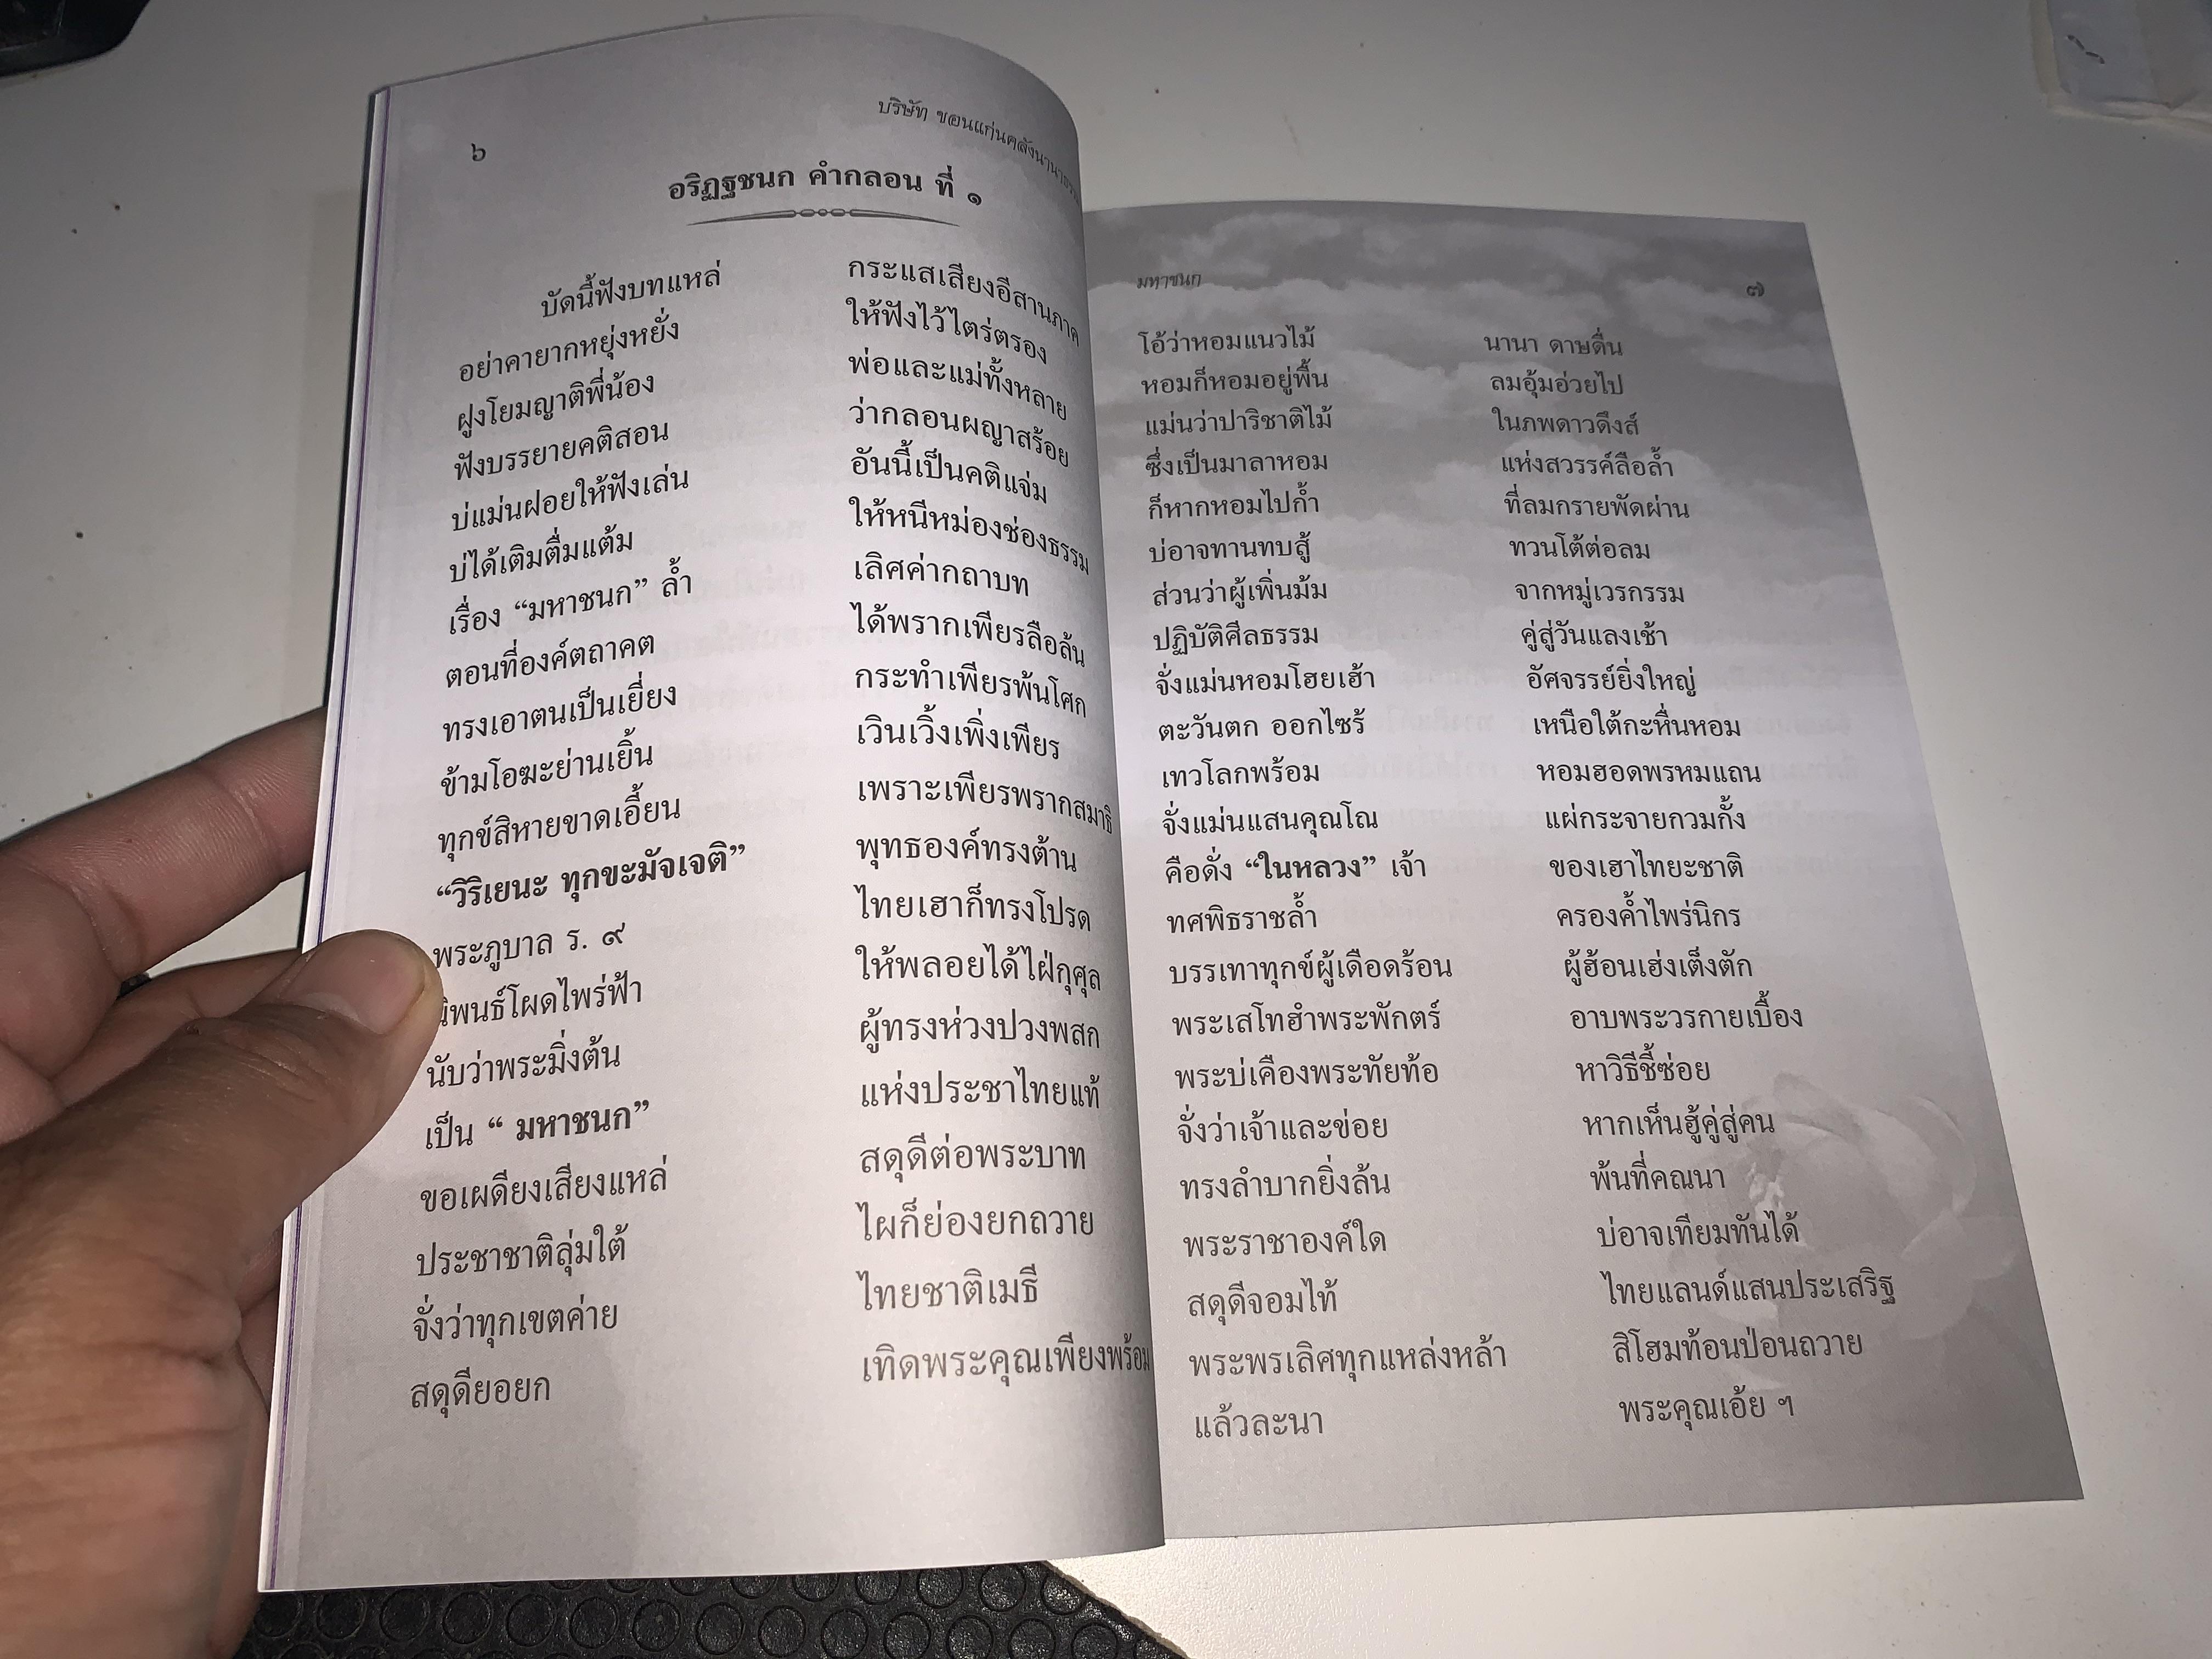 ๖
บริษัท ขอนแก่นคลังนานาธรรม
อริฏฐชนก คำกลอน ที่ ๑
บัดนี้ฟังบทแหล่ กระแสเสียงอีสานภาค
อย่าคายากหยุ่งหยั่ง ให้ฟังไว้ไตร่ตรอง
ฝูงโยมญาติพี่น้อง พ่อและแม่ทั้งหลาย
ฟังบรรยายคติสอน ว่ากลอนผญาสร้อย
บ่แม่นฝอยให้ฟังเล่น อันนี้เป็นคติแจ่ม
บ่ได้เติมตื่มแต้ม ให้หนีหม่องช่องธรรม
เรื่อง “มหาชนก” ล้ำ เลิศค่ากถาบท
ตอนที่องค์ตถาคต ได้พรากเพียรลือล้น
ทรงเอาตนเป็นเยี่ยง กระทำเพียรพ้นโศก
ข้ามโอฆะย่านเยิ้น เวินเวิ้งเพิ่งเพียร
ทุกข์สิหายขาดเอี้ยน เพราะเพียรพรากสมาธิ
“วิริเยนะ ทุกขะมัจเจติ” พุทธองค์ทรงต้าน
พระภูบาล ร. ๙ ไทยเฮาก็ทรงโปรด
นิพนธ์โผดไพร่ฟ้า ให้พลอยได้ไฝ่กุศุล
นับว่าพระมิ่งต้น ผู้ทรงห่วงปวงพสก
เป็น “ มหาชนก” แห่งประชาไทยแท้
ขอเผดียงเสียงแหล่ สดุดีต่อพระบาท
ประชาชาติลุ่มใต้ ไผก็ย่องยกถวาย
จั่งว่าทุกเขตค่าย ไทยชาติเมธี
สดุดียอยก เทิดพระคุณเพียงพร้อม
มหาชนก
๗
โอ้ว่าหอมแนวไม้ นานา ดาษดื่น
หอมก็หอมอยู่พื้น ลมอุ้มอ่วยไป
แม่นว่าปาริชาติไม้ ในภพดาวดึงส์
ซึ่งเป็นมาลาหอม แห่งสวรรค์ลือล้ำ
ก็หากหอมไปก้ำ ที่ลมกรายพัดผ่าน
บ่อาจทานทบสู้ ทวนโต้ต่อลม
ส่วนว่าผู้เพิ่นม้ม จากหมู่เวรกรรม
ปฏิบัติศีลธรรม คู่สู่วันแลงเช้า
จั่งแม่นหอมโฮยเฮ้า อัศจรรย์ยิ่งใหญ่
ตะวันตก ออกไซร้ เหนือใต้กะหื่นหอม
เทวโลกพร้อม หอมฮอดพรหมแถน
จั่งแม่นแสนคุณโณ แผ่กระจายกวมกั้ง
คือดั่ง “ในหลวง” เจ้า ของเฮาไทยะชาติ
ทศพิธราชล้ำ ครองค้ำไพร่นิกร
บรรเทาทุกข์ผู้เดือดร้อน ผู้ฮ้อนเฮ่งเต็งตัก
พระเสโทฮำพระพักตร์ อาบพระวรกายเบื้อง
พระบ่เคืองพระทัยท้อ หาวิธีชี้ซ่อย
จั่งว่าเจ้าและข่อย หากเห็นฮู้คู่สู่คน
ทรงลำบากยิ่งล้น พ้นที่คณนา
พระราชาองค์ใด บ่อาจเทียมทันได้
สดุดีจอมไท้ ไทยแลนด์แสนประเสริฐ
พระพรเลิศทุกแหล่งหล้า สิโฮมท้อนป่อนถวาย
แล้วละนา พระคุณเอ้ย ฯ